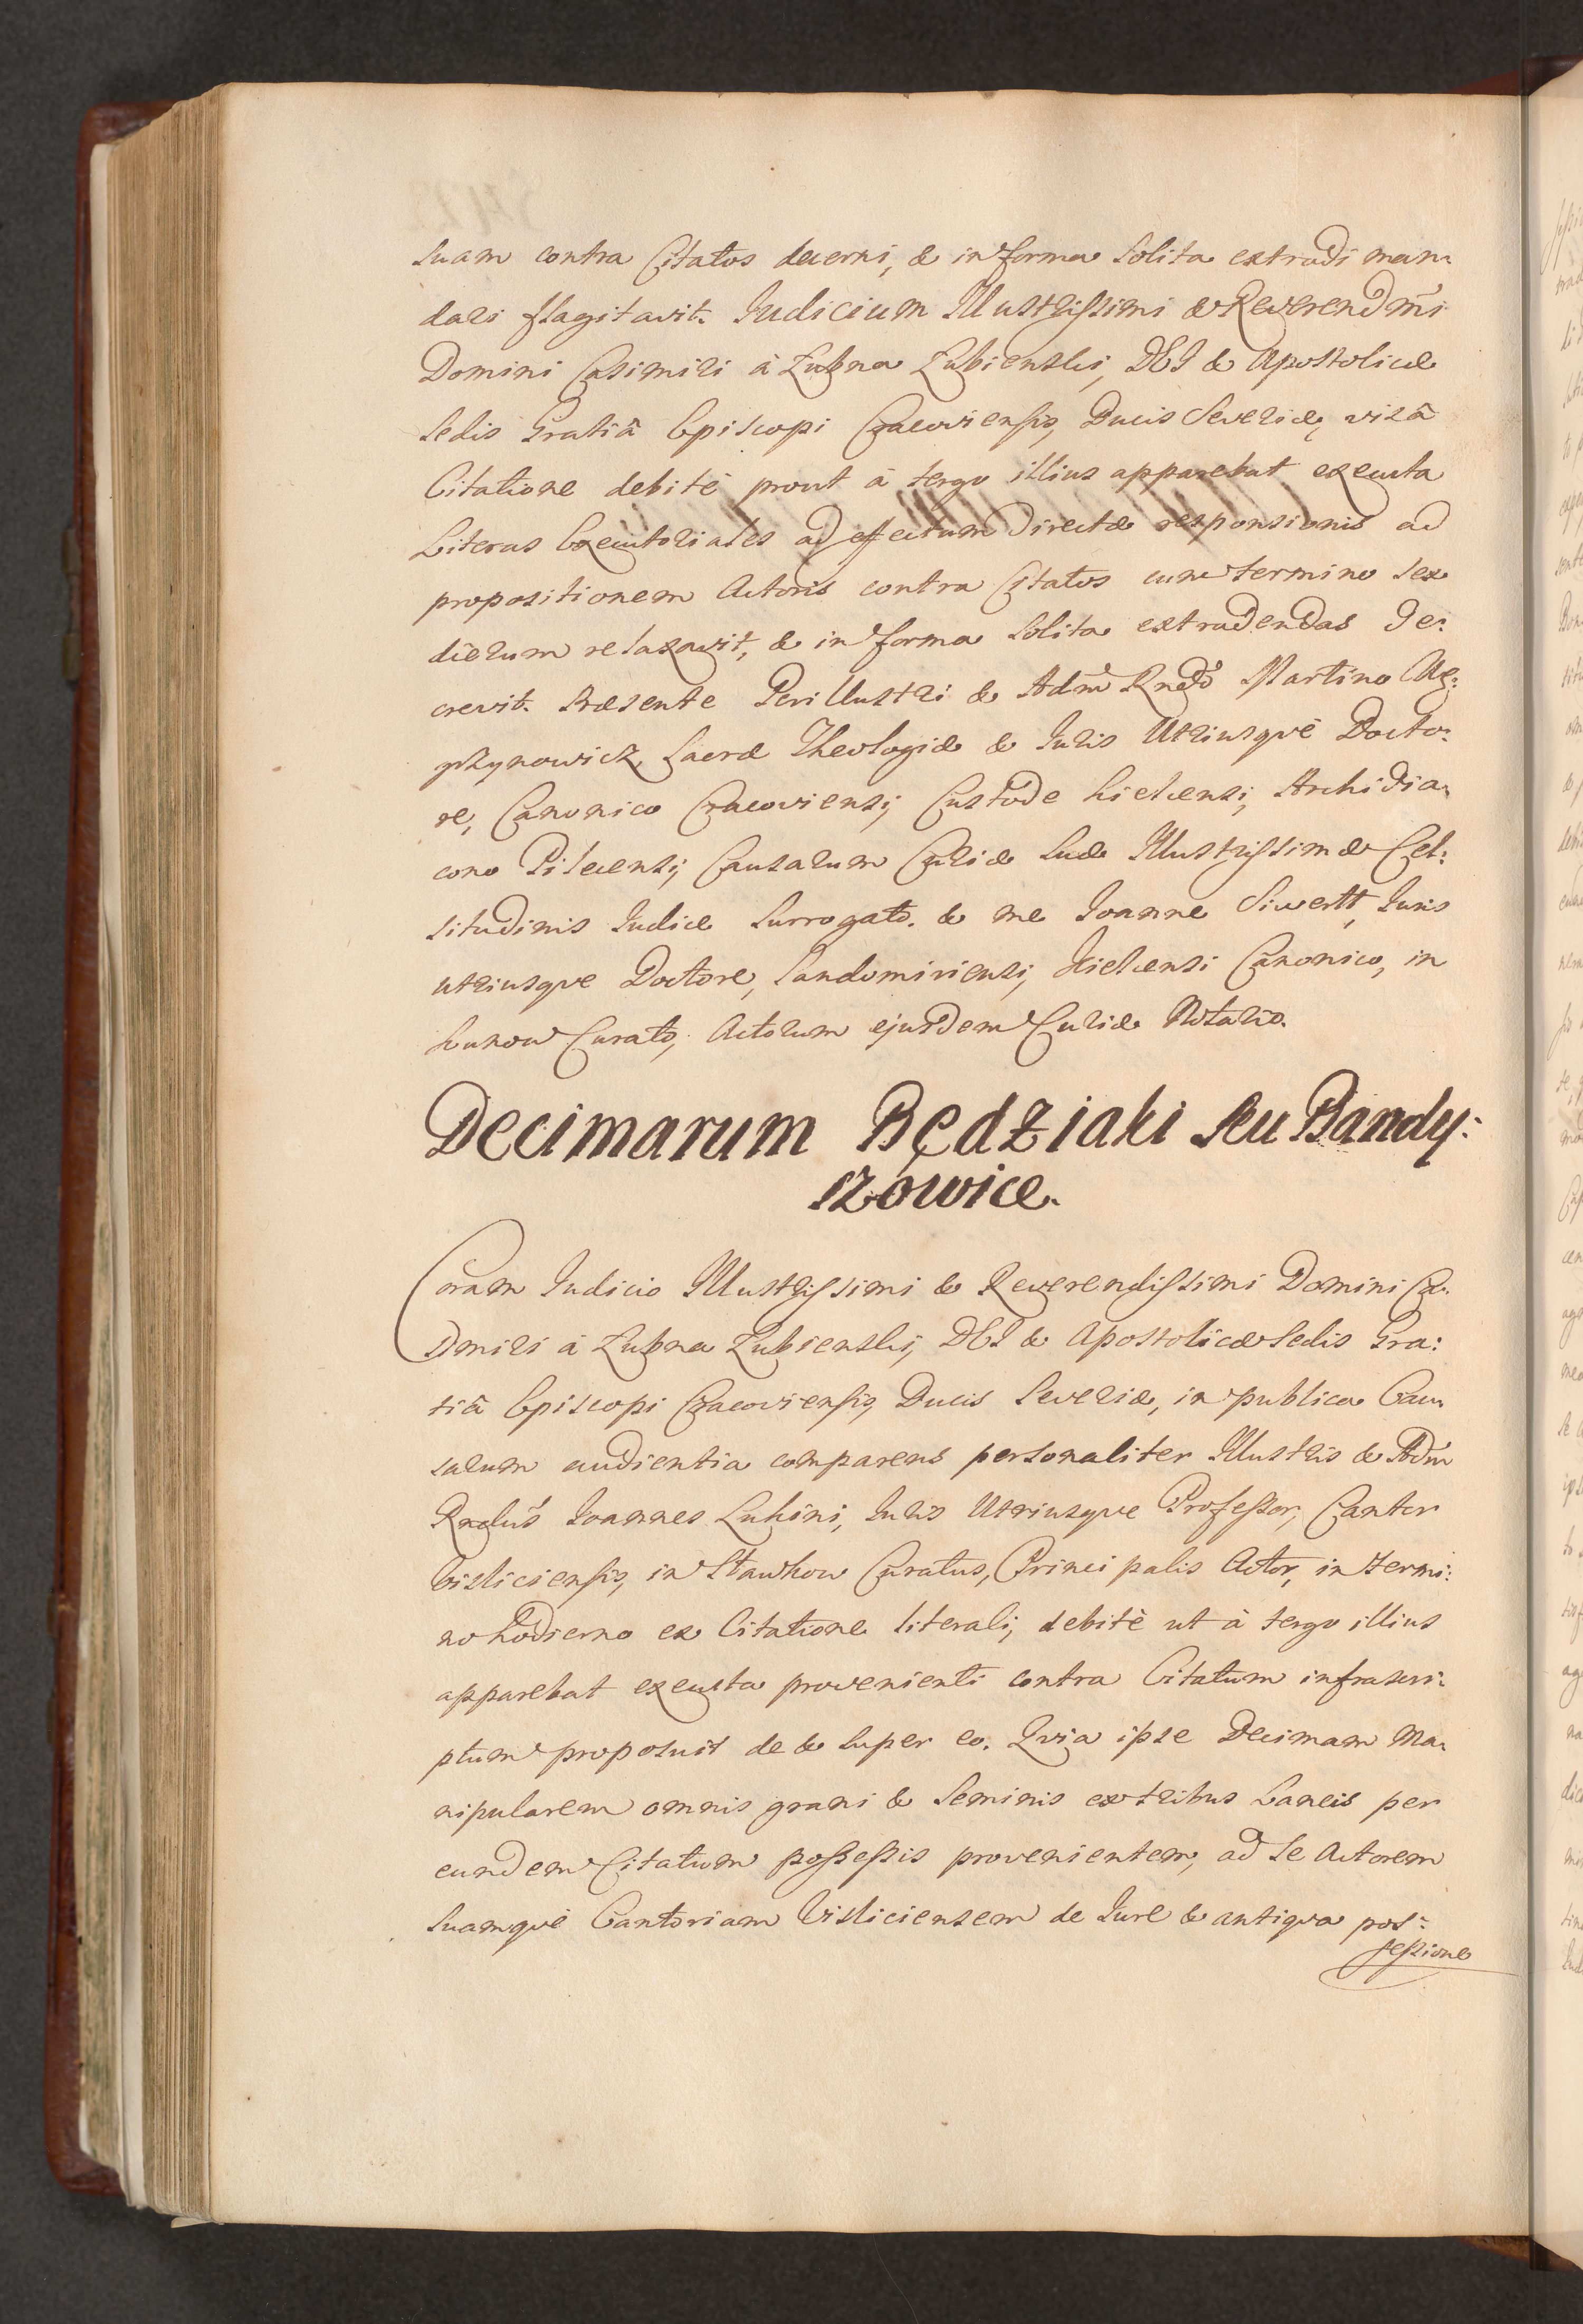 suam contra Citatos decerni, & in forma solita extradi man-
dari flagitavit. Iudicium Illustrissimi & Reverendmi
Domini Casimiri à Łubna Łubienski, DEI & Apostolicæ
Sedis Gratiâ Episcopi Cracoviensis, Ducis Severiæ, visâ
Citatione debitè prout à tergo illius apparebat executa
Literas Executoriales ad effectum directæ responsionis ad
propositionem Actoris contra Citatos cum termino sex
dierum relaxavit, & in forma solita extradendas de:
crevit. Præsente Perillustri & Adm Rndo Martino Wę:
grzynowicz, Sacræ Theologiæ & Iuris Utriusquè Docto:
re, Canonico Cracoviensi, Custode Kielcensi, Archidia-
cono Pilecensi, Causarum Curiæ Suæ Illustrissimæ Cel:
situdinis Iudice Surrogato. & me Ioanne Siwertt, Iuris
utriusque Doctore, Sandomiriensi, Kielcensi Canonico, in
Kunow Curato, Actorum ejusdem Curiæ Notario.
Decimarum Będziaki seu Bandy:
szowice.
Coram Iudicio Illustrissimi & Reverendissimi Domini Ca-
simiri à Łubna Łubienski, DEI & Apostolicæ Sedis Gra:
tiâ Episcopi Cracoviensis, Ducis Severiæ, in publica Cau-
sarum audientia comparens personaliter Illustris & Adm
Rndus Ioannes Luhini, Iuris Utriusque Professor, Cantor
Visliciensis, in Stawkow Curatus, Principalis Actor, in termi:
no hodierno ex Citatione literali, debitè ut à tergo illius
apparebat executa provenienti contra Citatum infrascri:
ptum proposuit de & super eo. Quia ipse Decimam Ma-
nipularem omnis grani & Seminis ex tribus Laneis per
eundem Citatum possessis provenientem, ad se Actorem
suamquè Cantoriam Visliciensem de Iure & antiqua pos:
sessione